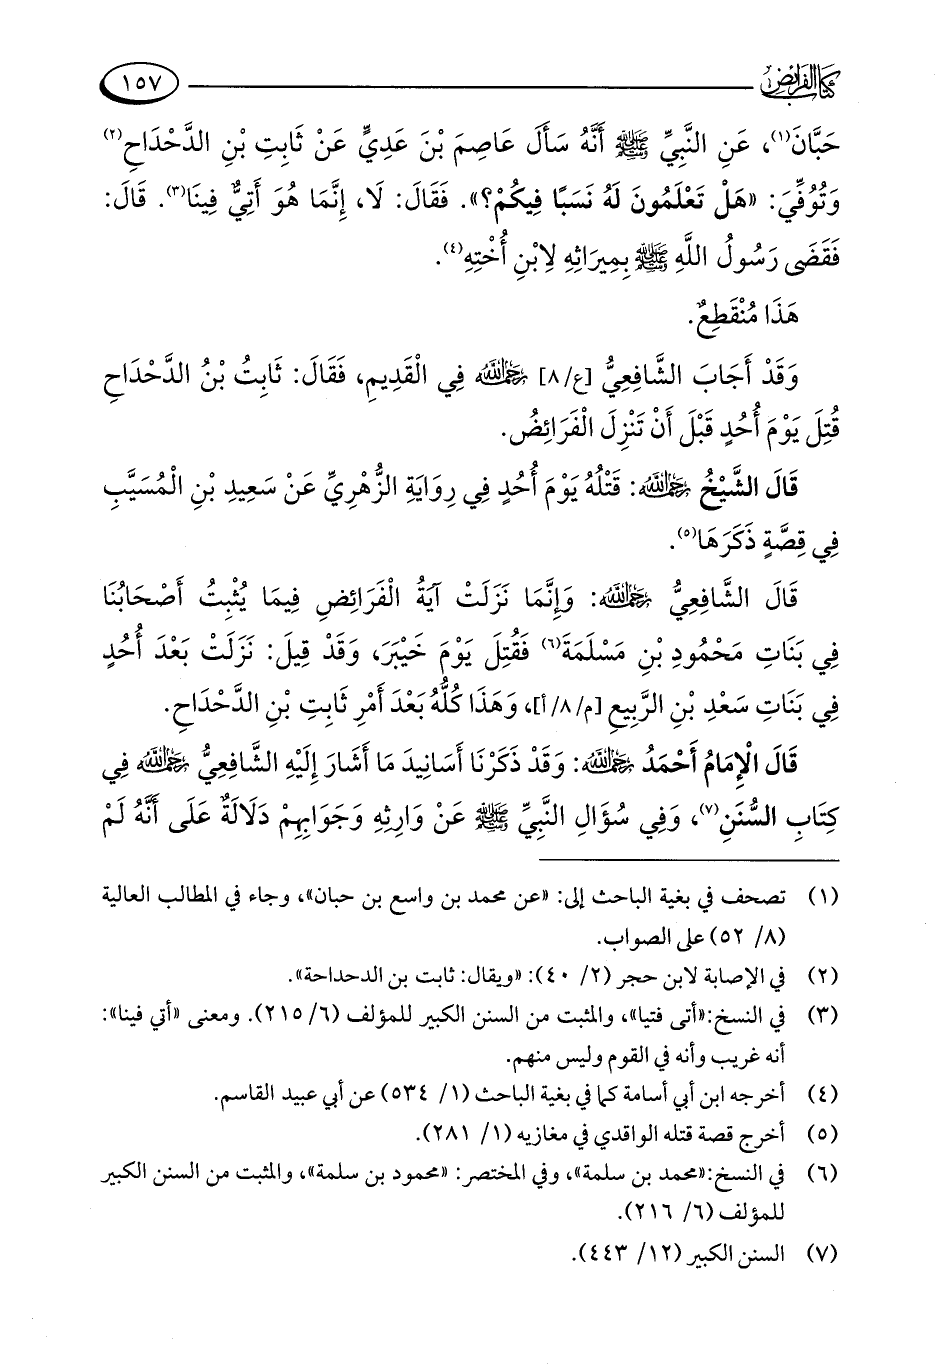 كتاب الفرائض
١٥٧
حَبَّانَ(١)، عَنِ النَّبِيِّ ﷺ أَنَّهُ سَأَلَ عَاصِمَ بْنَ عَدِيٍّ عَنْ ثَابِتِ بْنِ الدَّحْدَاحِ(٢)
وَتُوُفِّيَ: «هَلْ تَعْلَمُونَ لَهُ نَسَبًا فِيكُمْ؟». فَقَالَ: لَا، إِنَّمَا هُوَ أَتِيٌّ فِينَا(٣). قَالَ:
فَقَضَى رَسُولُ اللَّهِ ﷺ بِمِيرَاثِهِ لِابْنِ أُخْتِهِ(٤).
هَذَا مُنْقَطِعٌ.
وَقَدْ أَجَابَ الشَّافِعِيُّ [ع/٨] رحمه الله فِي الْقَدِيمِ، فَقَالَ: ثَابِتُ بْنُ الدَّحْدَاحِ
قُتِلَ يَوْمَ أُحُدٍ قَبْلَ أَنْ تَنْزِلَ الْفَرَائِضُ.
قَالَ الشَّيْخُ رحمه الله: قَتْلُهُ يَوْمَ أُحُدٍ فِي رِوَايَةِ الزُّهْرِيِّ عَنْ سَعِيدِ بْنِ الْمُسَيَّبِ
فِي قِصَّةٍ ذَكَرَهَا(٥).
قَالَ الشَّافِعِيُّ رحمه الله: وَإِنَّمَا نَزَلَتْ آيَةُ الْفَرَائِضِ فِيمَا يُثْبِتُ أَصْحَابُنَا
فِي بَنَاتِ مَحْمُودِ بْنِ مَسْلَمَةَ(٦) فَقُتِلَ يَوْمَ خَيْبَرَ، وَقَدْ قِيلَ: نَزَلَتْ بَعْدَ أُحُدٍ
فِي بَنَاتِ سَعْدِ بْنِ الرَّبِيعِ [م/٨/أ]، وَهَذَا كُلُّهُ بَعْدَ أَمْرِ ثَابِتِ بْنِ الدَّحْدَاحِ.
قَالَ الْإِمَامُ أَحْمَدُ رحمه الله: وَقَدْ ذَكَرْنَا أَسَانِيدَ مَا أَشَارَ إِلَيْهِ الشَّافِعِيُّ رحمه الله فِي
كِتَابِ السُّنَنِ(٧)، وَفِي سُؤَالِ النَّبِيِّ ﷺ عَنْ وَارِثِهِ وَجَوَابِهِمْ دَلَالَةٌ عَلَى أَنَّهُ لَمْ
(١) تصحف في بغية الباحث إلى: «عن محمد بن واسع بن حبان»، وجاء في المطالب العالية
(٨/ ٥٢) على الصواب.
(٢) في الإصابة لابن حجر (٢/ ٤٠): «ويقال: ثابت بن الدحداحة».
(٣) في النسخ:«أتى فتيا»، والمثبت من السنن الكبير للمؤلف (٦/ ٢١٥). ومعنى «أتي فينا»:
أنه غريب وأنه في القوم وليس منهم.
(٤) أخرجه ابن أبي أسامة كما في بغية الباحث (١/ ٥٣٤) عن أبي عبيد القاسم.
(٥) أخرج قصة قتله الواقدي في مغازيه (١/ ٢٨١).
(٦) في النسخ:«محمد بن سلمة»، وفي المختصر: «محمود بن سلمة»، والمثبت من السنن الكبير
للمؤلف (٦/ ٢١٦).
(٧) السنن الكبير (١٢/ ٤٤٣).